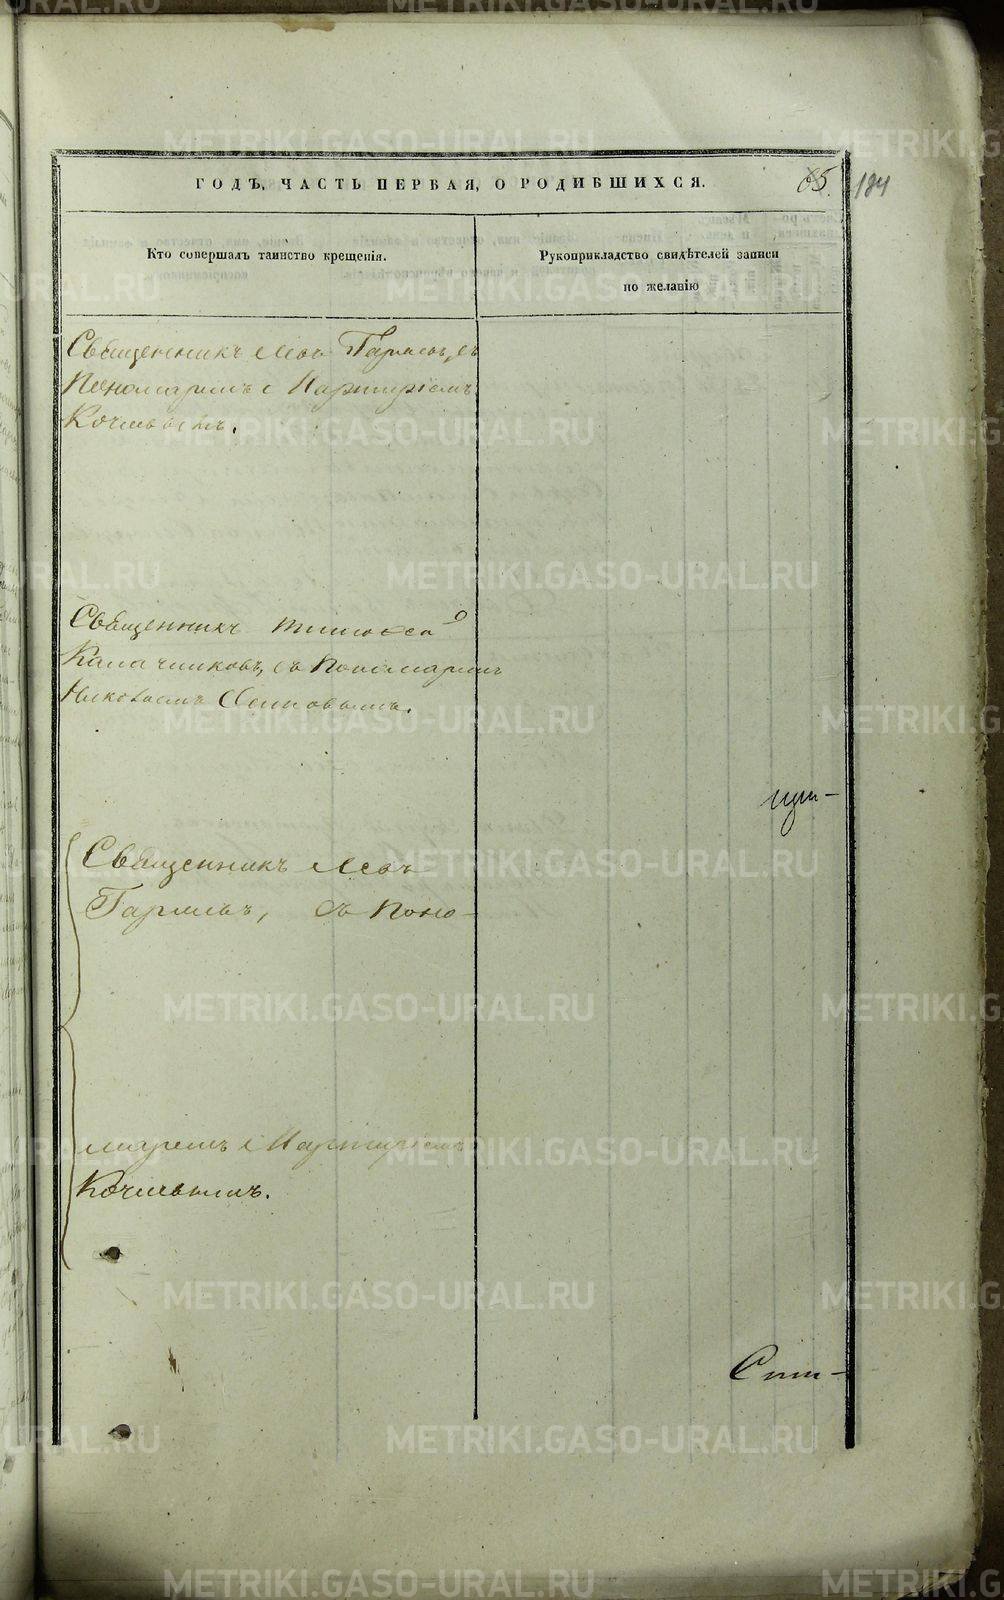 ГОДЪ, ЧАСТЬ ПЕРВАЯ, О РОДИВШИХСЯ.
65.
184
Кто совершалъ таинство крещенія.
Рукоприкладство свидѣтелей записи
по желанію
Священникъ Левъ Гаряевъ, съ
Пономаремъ Мартиріемъ
Кочневымъ.
Священникъ Тимофей
Калачниковъ, съ Пономаремъ
Николаемъ Осиповымъ.
Священникъ Левъ
Гаряевъ, съ Поно-
маремъ Мартиріемъ
Кочневымъ.
METRIKI.GASO-URAL.RU